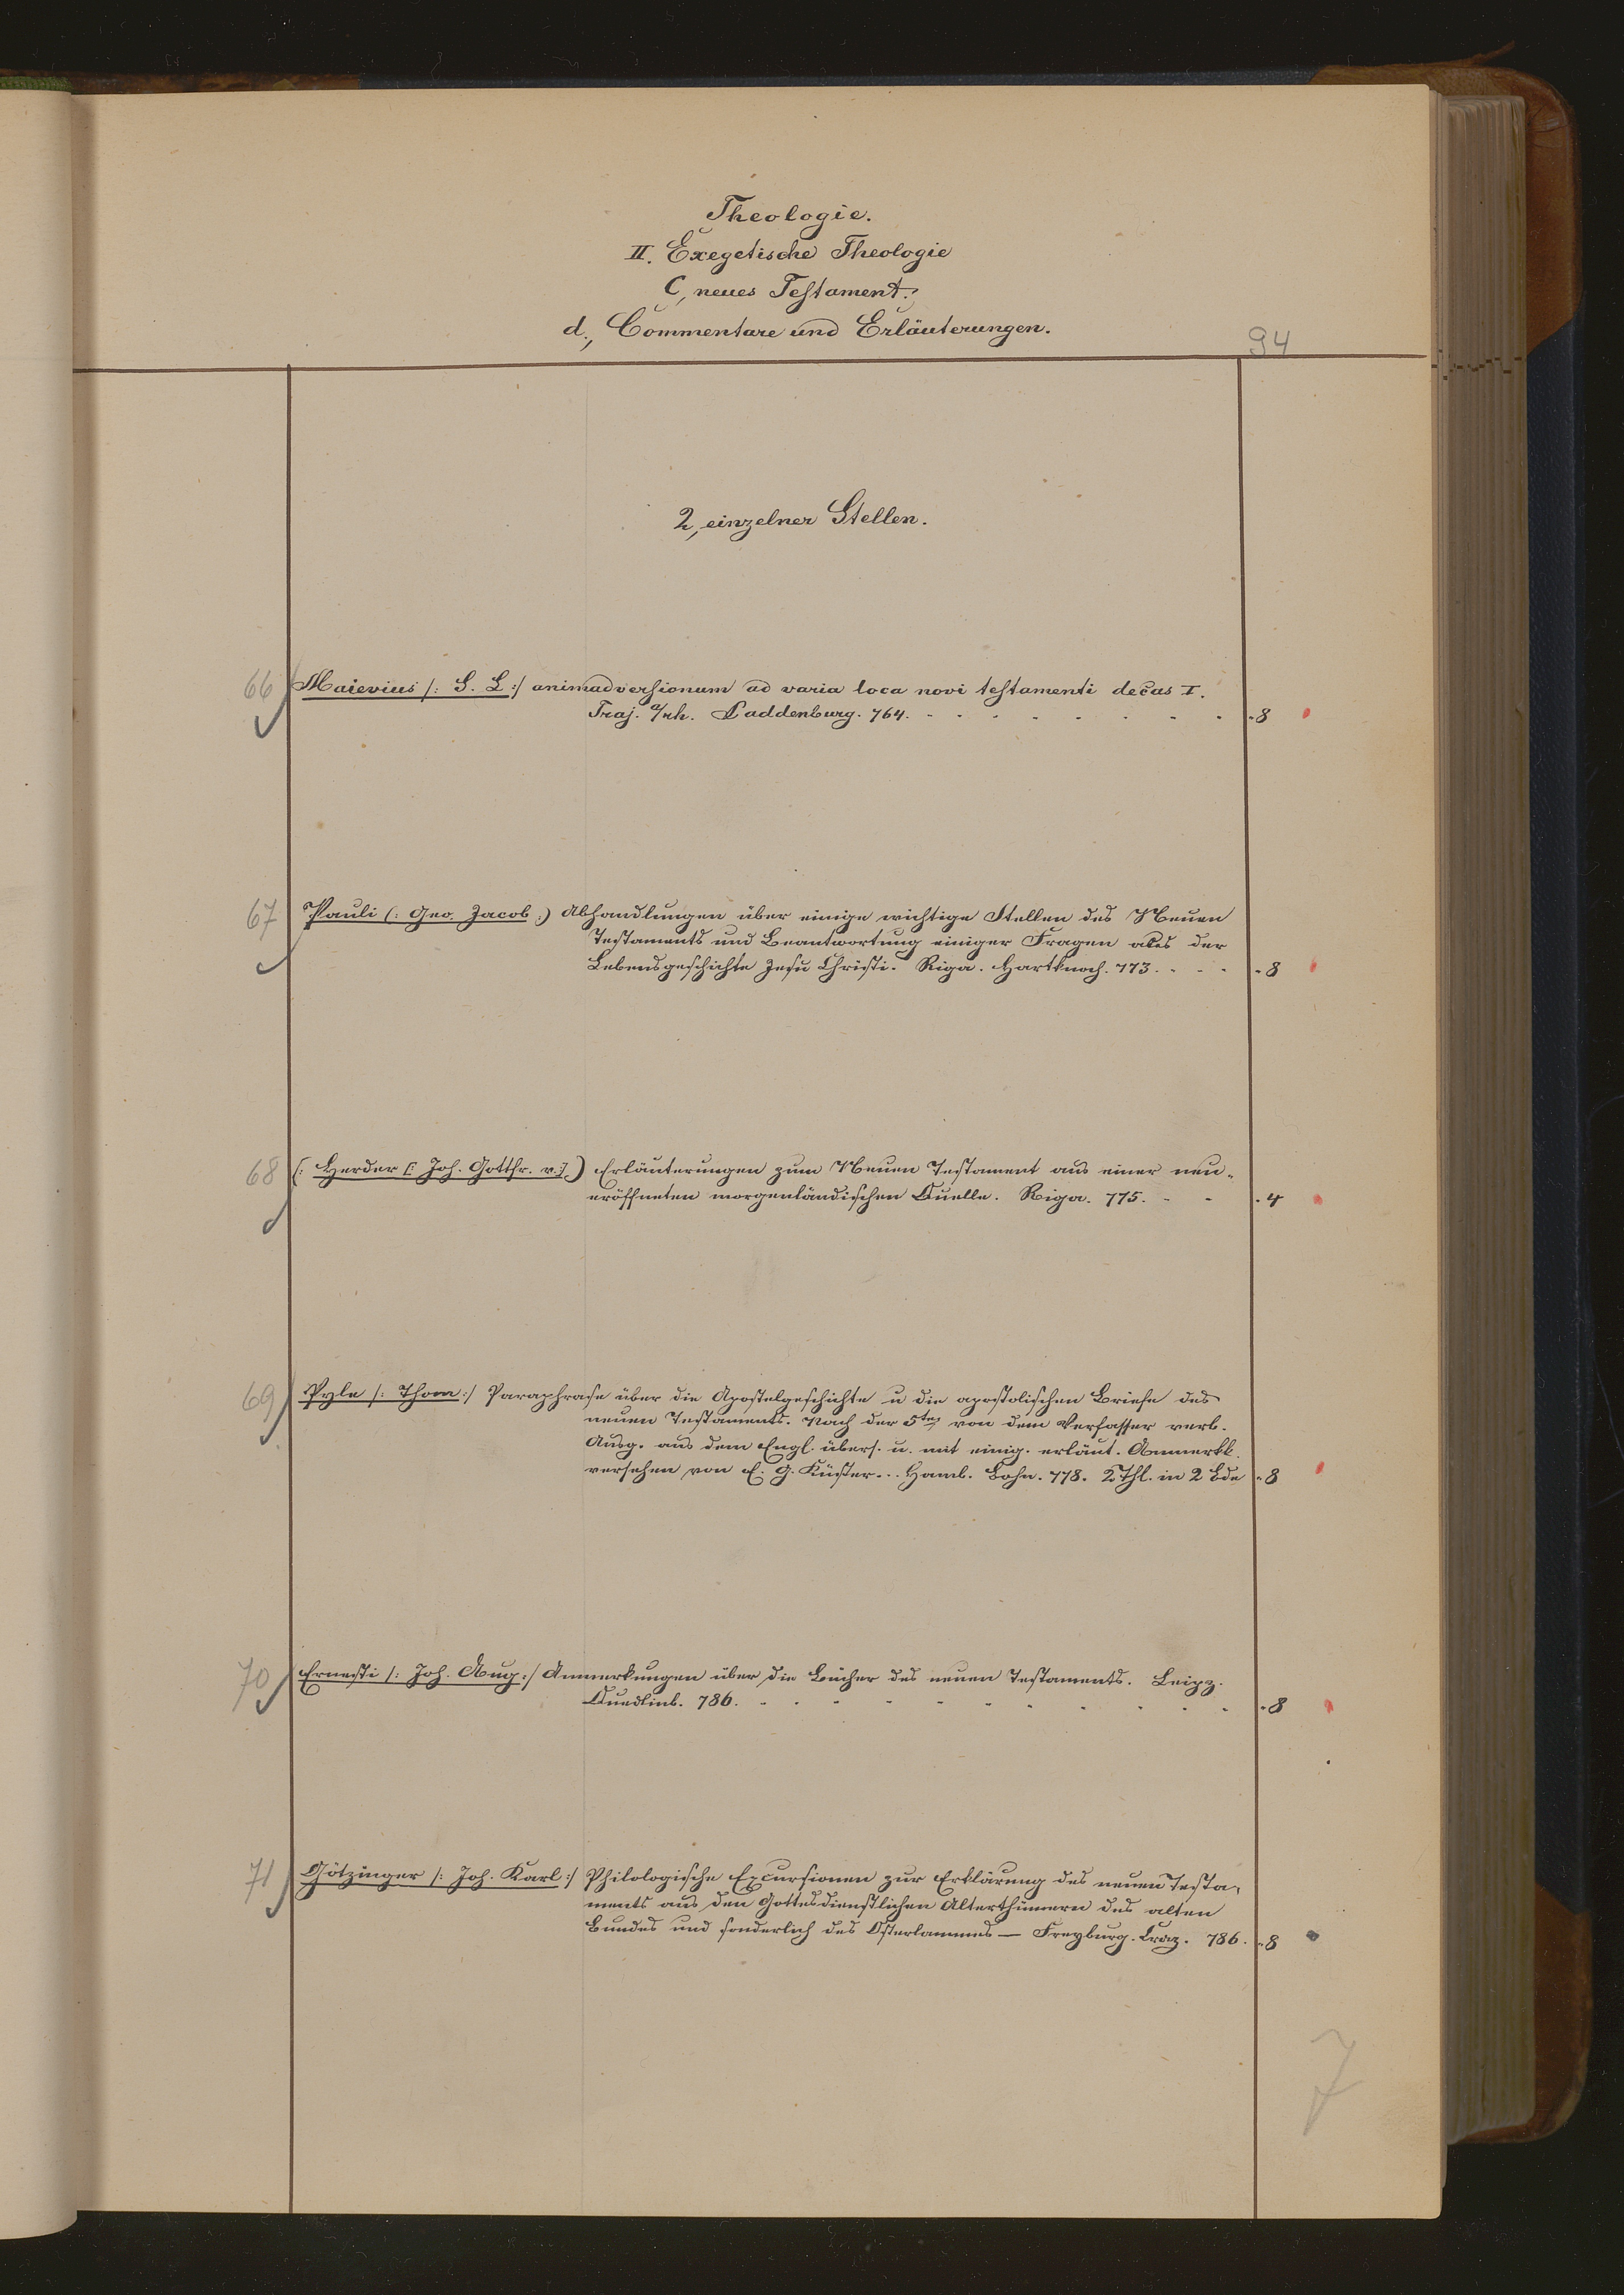 Theologie.
II. Exegetische Theologie
C, neues Testament.
d., Commentare und Erläuterungen.
94
2, einzelner Stellen.
66 Maievius /: S. L :/ animadversionum ad varia loca novi testamenti decas I.
Traj. a/rh. Paddenburg. 764. - - - - - - - - 8
67 Pauli (: Geo. Jacob :) Abhandlungen über einige wichtige Stellen des Neuen
Testaments und Beantwortung einiger Fragen aus der
Lebensgeschichte Jesu Christi. Riga. Hartknoch. 773. - - - 8
68 (: Herder [: Joh. Gottfr. v.:] :) Erläuterungen zum Neuen Testament aus einer neu-
eröffneten morgenländischen Quelle. Riga. 775. - - - 4
69 Pyle /: Thom :/ Paraphrase über die Apostelgeschichte u die apostolischen Briefe des
neuen Testaments. Nach der 5ten von dem Verfasser verb.
Ausg. aus dem Engl. übers. u. mit einig. erläut. Anmerkk.
versehen von E. G. Küster... Hamb. Bohn. 778. 2 Thl. in 2 Bde - 8
70 Ernesti /: Joh. Aug :/ Anmerkungen über die Bücher des neuen Testaments. Leipz.
Quedlinb. 786. - - - - - - - - - - 8
71 Götzinger /: Joh. Karl :/ Philologische Excursionen zur Erklärung des neuen Testa-
ments aus den Gottesdienstlichen Alterthümern des alten
Bundes und sonderlich des Osterlammes — Freyburg. Craz. 786. - 8
7